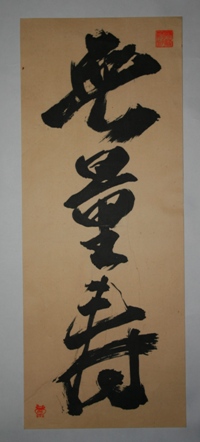 無量寿